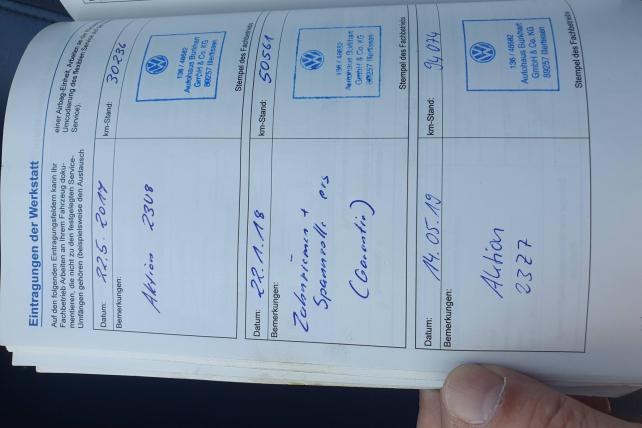 Eintragungen der Werkstatt
Auf den folgenden Eintragungsfeldern kann Ihr
Fachbetrieb Arbeiten an Ihrem Fahrzeug doku-
mentieren, die nicht zu den festgelegten Service-
Umfängen gehören (beispielsweise den Austausch
einer Airbag-Einheit, Arbeiten
Umcodierung des flexiblen Service
Service).
Datum: 22.5.2017
km-Stand: 30236
Bemerkungen:
Aktion 23U8
136 / 48682
Autohaus Burkhart
GmbH & Co. KG
89257 Illertissen
Stempel des Fachbetriebs
Datum: 22.1.18
km-Stand: 50561
Bemerkungen:
Zahnriemen +
Spannrolle ers
(Garantie)
Autohaus Burkhart
GmbH & Co. KG
89257 Illertissen
Stempel des Fachbetriebs
Datum: 14.05.19
km-Stand: 94074
Bemerkungen:
Aktion
23Z7
136 / 48682
Autohaus Burkhart
GmbH & Co. KG
89257 Illertissen
Stempel des Fachbetriebs